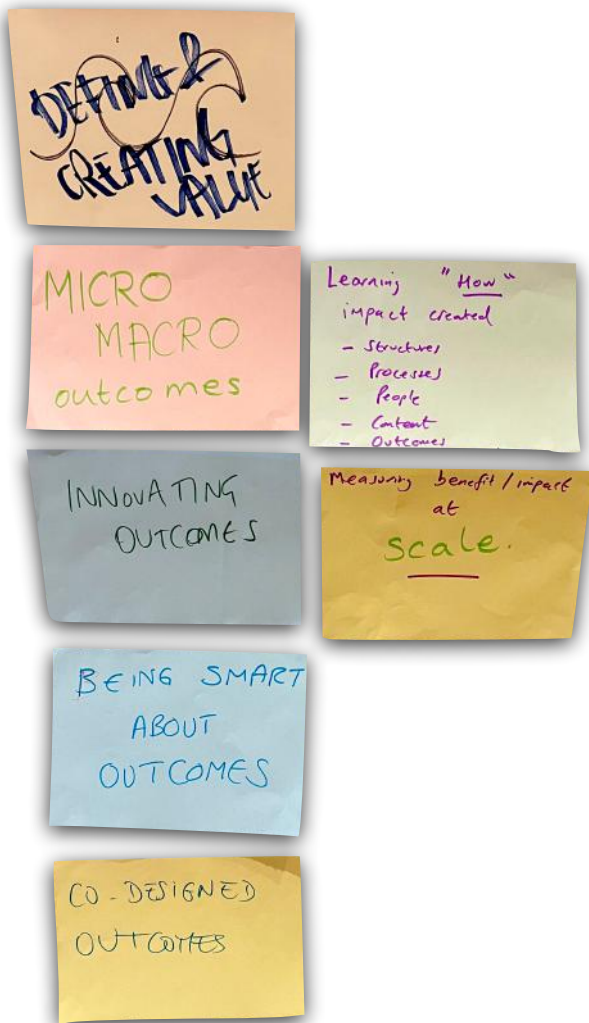 DEFINING &
CREATING
VALUE
MICRO
MACRO
outcomes
Learning "How"
impact created
- Structures
- Processes
- People
- Content
- Outcomes
INNOVATING
OUTCOMES
Measuring benefit / impact
at
scale.
BEING SMART
ABOUT
OUTCOMES
CO-DESIGNED
OUTCOMES